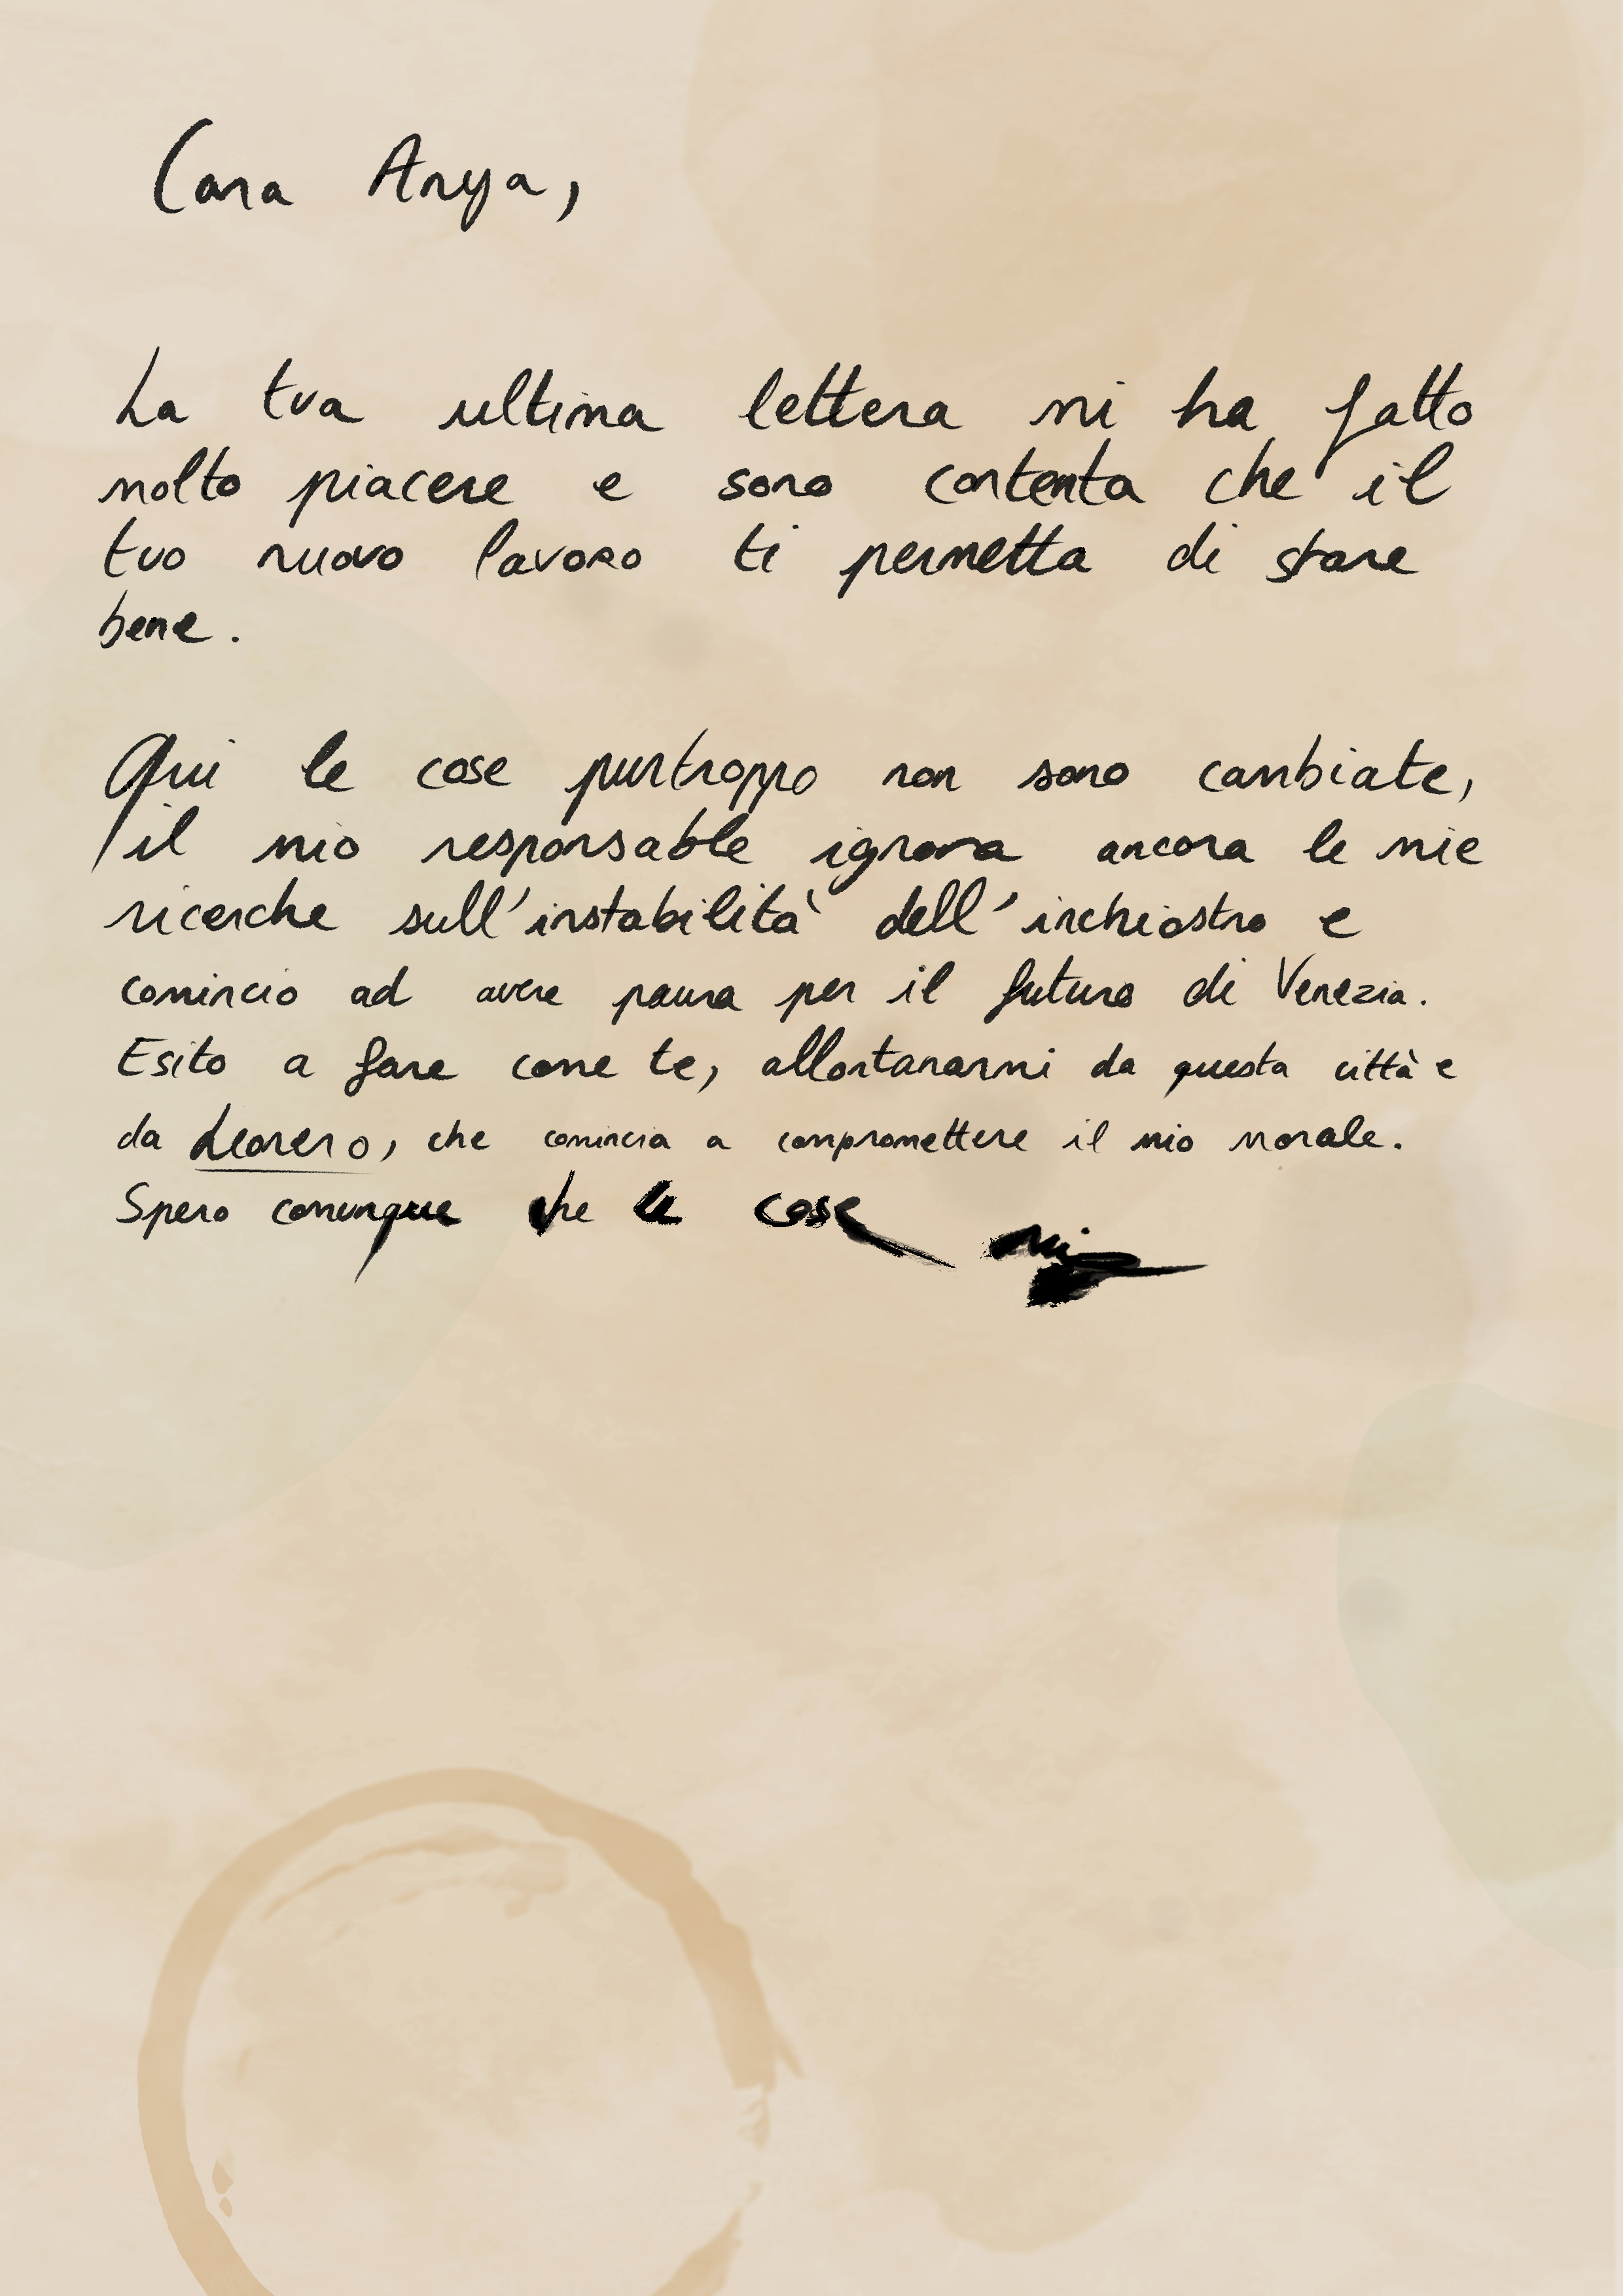 Cara Anya,
La tua ultima lettera mi ha fatto
molto piacere e sono contenta che il
tuo nuovo lavoro ti permetta di stare
bene.
Qui le cose purtroppo non sono cambiate,
il mio responsable ignora ancora le mie
ricerche sull'instabilità dell'inchiostro e
comincio ad avere paura per il futuro di Venezia.
Esito a fare come te, allontanarmi da questa città e
da Leonero, che comincia a compromettere il mio morale.
Spero comunque che le cose